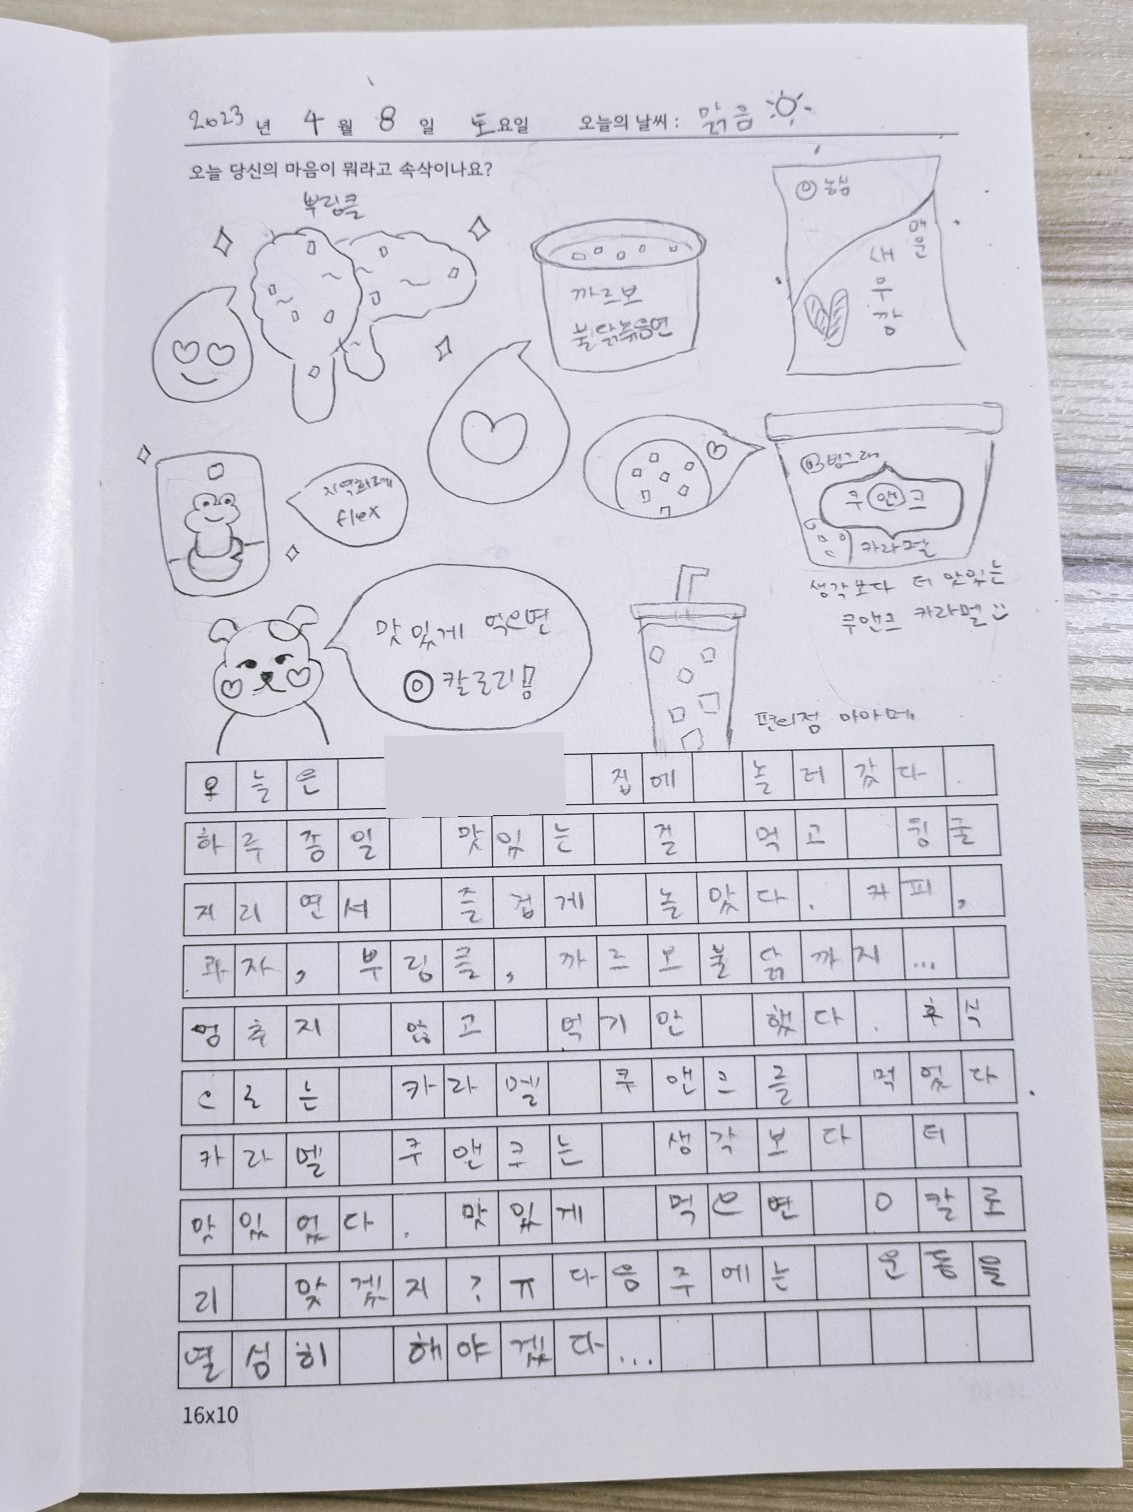 2023년 4월 8일 토요일 오늘의 날씨 : 맑음
오늘 당신의 마음이 뭐라고 속삭이나요?
뿌링클
까르보
불닭볶음면
농심
매운
새우깡
지역화폐
flex
빙그레
쿠앤크
카라멜
생각보다 더 맛있는
쿠앤크 카라멜
맛있게 먹으면
0칼로리몸
편의점 아아메
오늘은 집에 놀러 갔다.
하루종일 맛있는 걸 먹고 뒹굴
거리면서 즐겁게 놀았다. 커피,
과자, 뿌링클, 까르보불닭까지...
멈추지 않고 먹기만 했다. 후식
으로는 카라멜 쿠앤크를 먹었다.
카라멜 쿠앤쿠는 생각보다 더
맛있었다. 맛있게 먹으면 0칼로
리 맞겠지?ㅠ다음주에는 운동을
열심히 해야겠다...
16x10